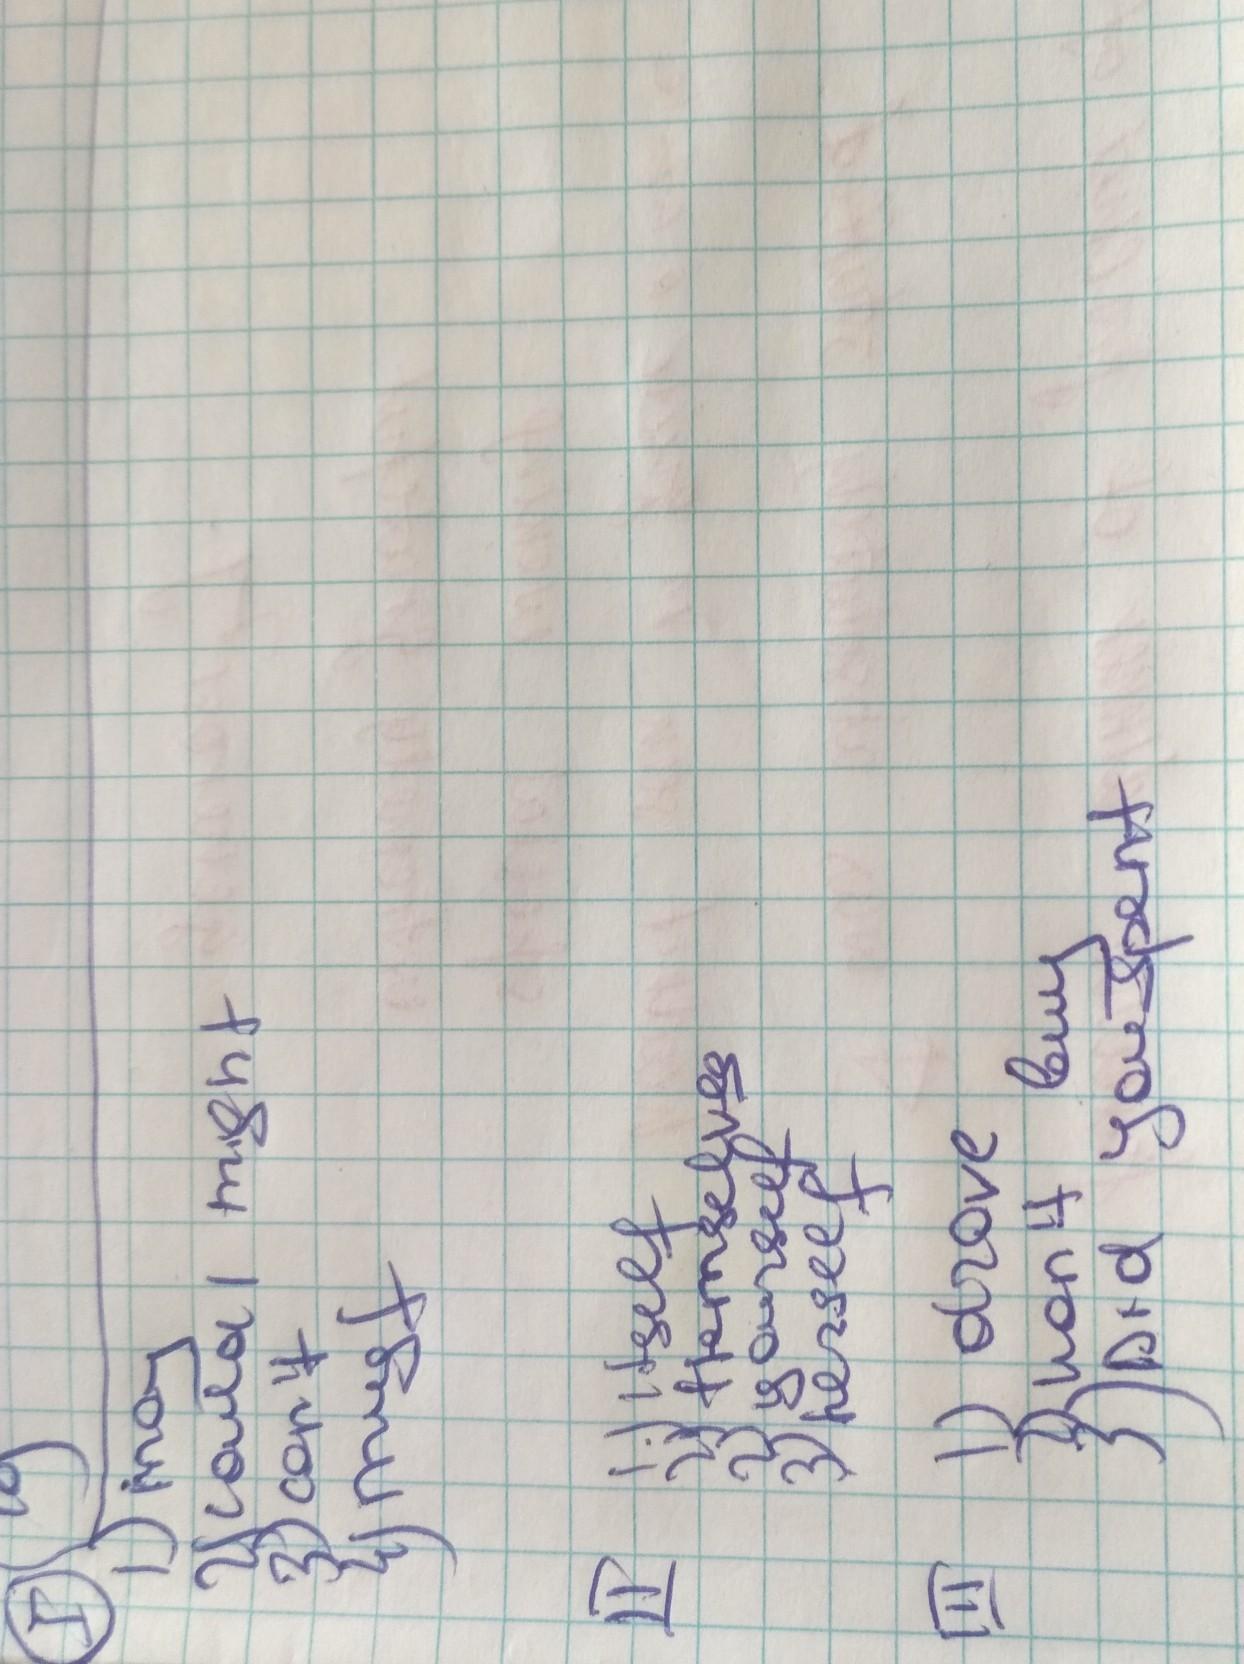 I
1) may
2) could / might
3) can't
4) must
II
1) itself
2) themselves
2) yourself
3) herself
III
1) drove
2) won't buy
3) Did you spent